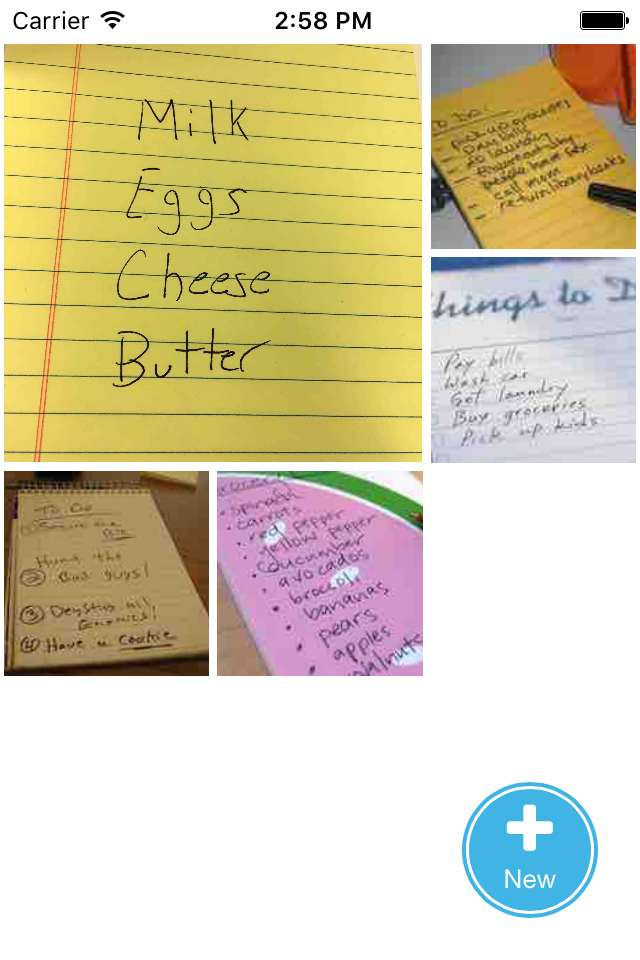 Carrier 2:58 PM
Milk
Eggs
Cheese
Butter
To Do:
pick up groceries
pay bills
do laundry
call mom
return library books
hings to D
Pay bills
Wash car
Get laundry
Buy groceries
Pick up kids
To Do
①
Hunt the
② Bad guys!
③ Destroy all
④ Have a cookie
• spinach
• carrots
• red pepper
• yellow pepper
• cucumber
• avocados
• broccoli
• bananas
• pears
• apples
walnuts
New